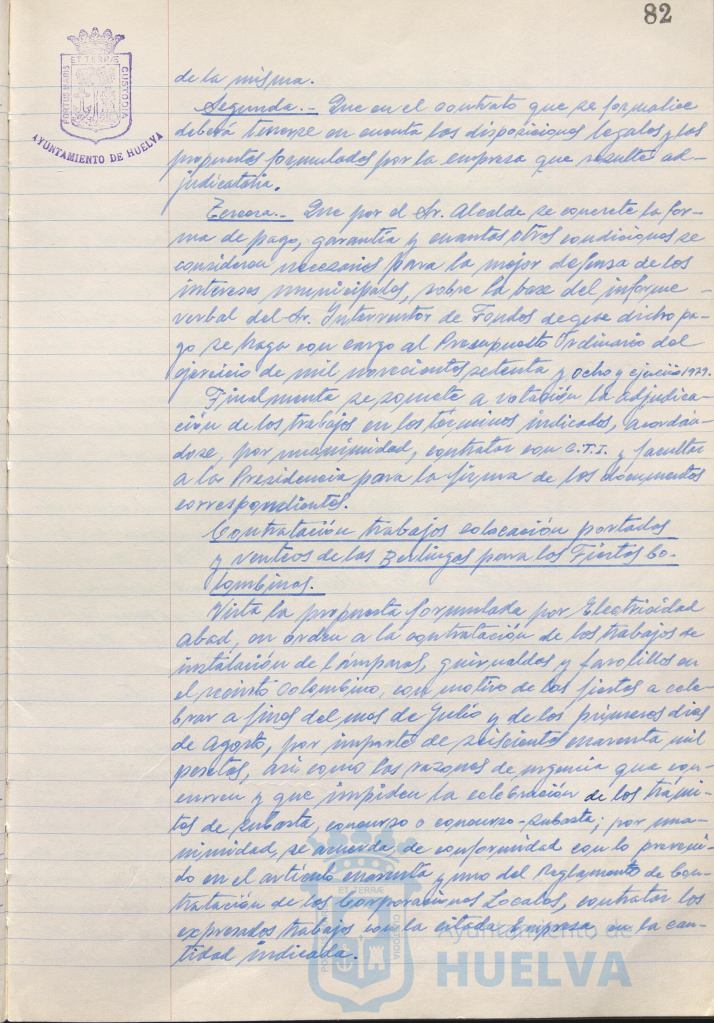 82
PORTUS MARIS ET TERRÆ CUSTODIA
AYUNTAMIENTO DE HUELVA
de la misma.
Segunda.- Que en el contrato que se formalice
deberá tenerse en cuenta las disposiciones legales y las
propuestas formulados por la empresa que resulte ad-
judicataria.
Tercera.- Que por el Sr. Alcalde se concrete la for-
ma de pago, garantía y cuantas otras condiciones se
consideren necesarias para la mejor defensa de los
intereses municipales, sobre la base del informe
verbal del Sr. Interventor de Fondos de que dicho pa-
go se haga con cargo al Presupuesto Ordinario del
ejercicio de mil novecientos setenta y ocho y ejercicio 1979.
Finalmente se somete a votación la adjudica-
ción de los trabajos en los términos indicados, acordán-
dose, por unanimidad, contratar con C.T.I. y facultar
a la Presidencia para la firma de los documentos
correspondientes.
Contratación trabajos colocación portadas
y venteos de las Bellingas para las Fiestas Co-
lombinas.
Vista la propuesta formulada por Electricidad
Abad, en orden a la contratación de los trabajos de
instalación de lámparas, guirnaldas y farolillos en
el recinto Colombino, con motivo de las fiestas a cele-
brar a fines del mes de Julio y de los primeros dias
de Agosto, por importe de seiscientas cuarenta mil
pesetas, así como las razones de urgencia que con-
curren y que impiden la celebración de los trámi-
tes de subasta, concurso o concurso-subasta; por una-
nimidad, se acuerda, de conformidad con lo preveni-
do en el artículo cuarenta y uno del Reglamento de Con-
tratación de las Corporaciones Locales, contratar los
expresados trabajos con la citada Empresa en la can-
tidad indicada.
PORTUS MARIS ET TERRÆ CUSTODIA
Ayuntamiento de
HUELVA